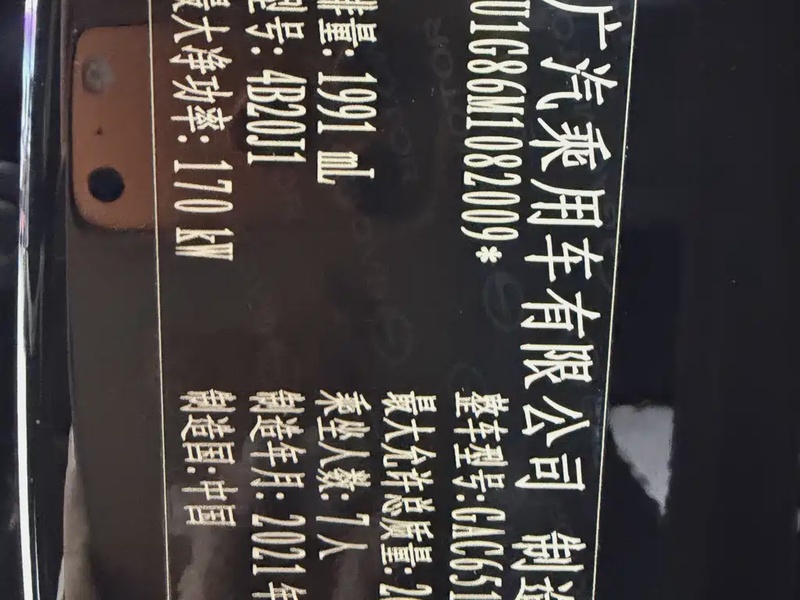 广汽乘用车有限公司 制造
U1G86M1082009* 整车型号:GAC651
最大允许总质量:2
排量: 1991 mL 乘坐人数: 7人
型号: 4B20J1 制造年月: 2021年
最大净功率: 170 kW 制造国:中国